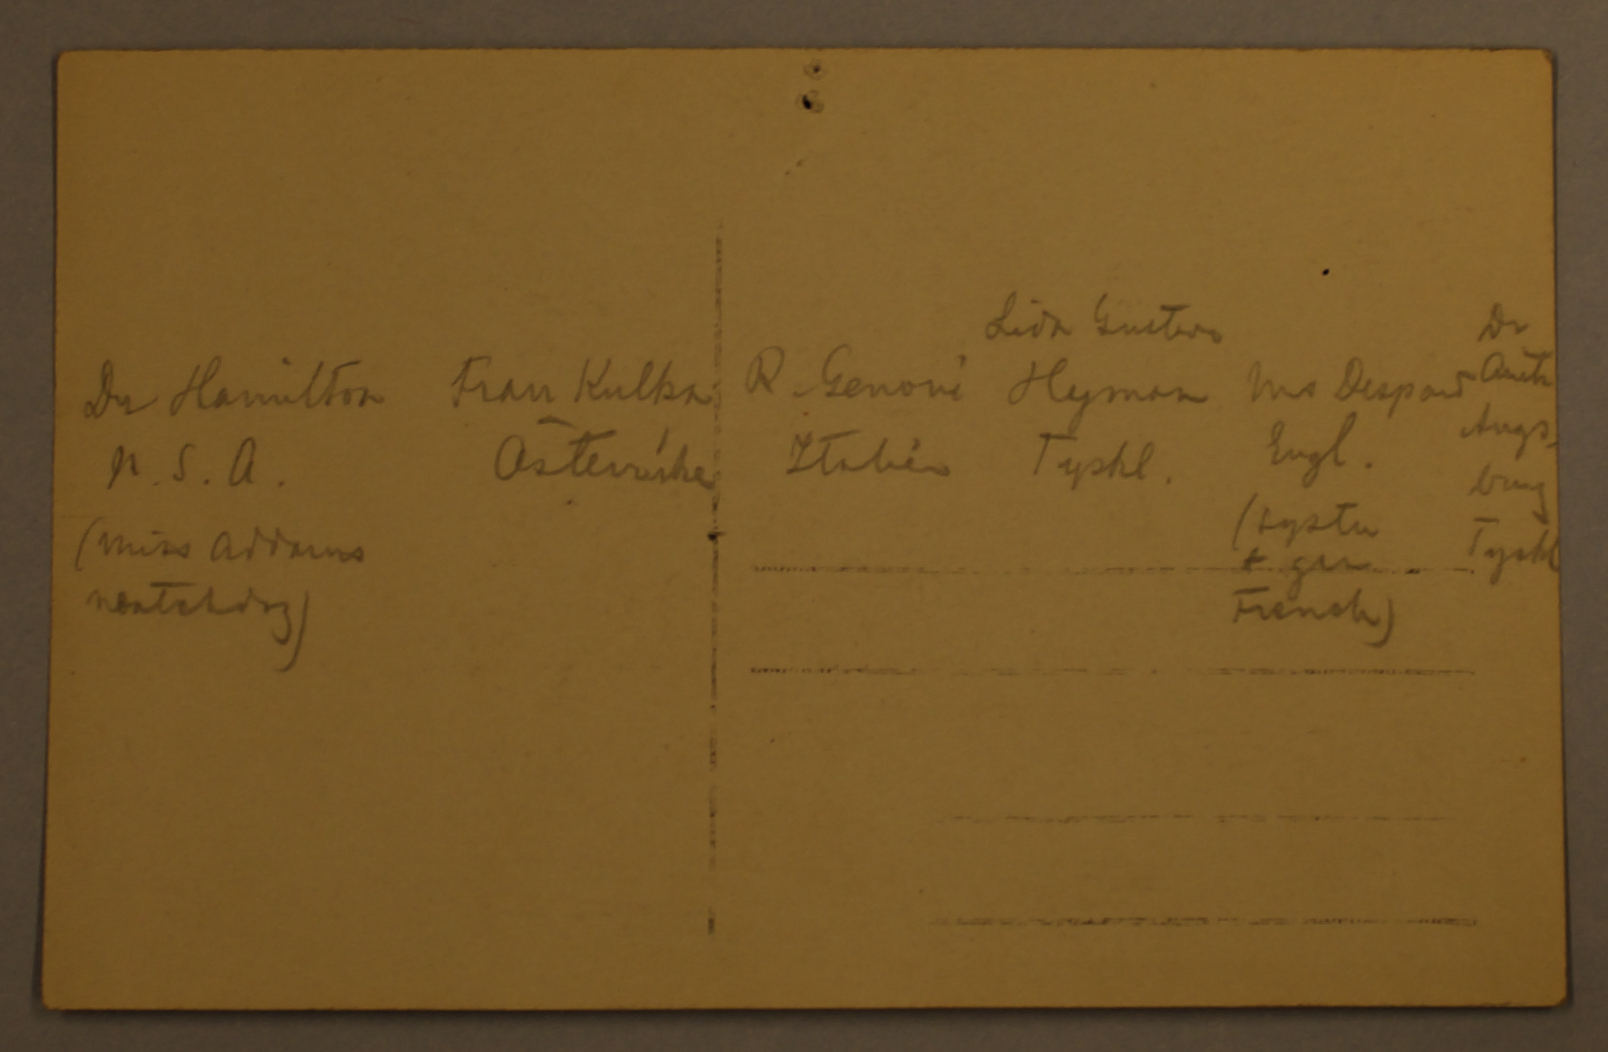 Dr Hamilton
U.S.A.
(Miss Addams
Frau Kulka
Österrike
R. Genoni
Italien
Lida Gustava
Heyman
Tyskl.
Mrs Despard
Engl.
(syster
t. gen
French)
Dr
Anita
Augs-
burg
Tyskl